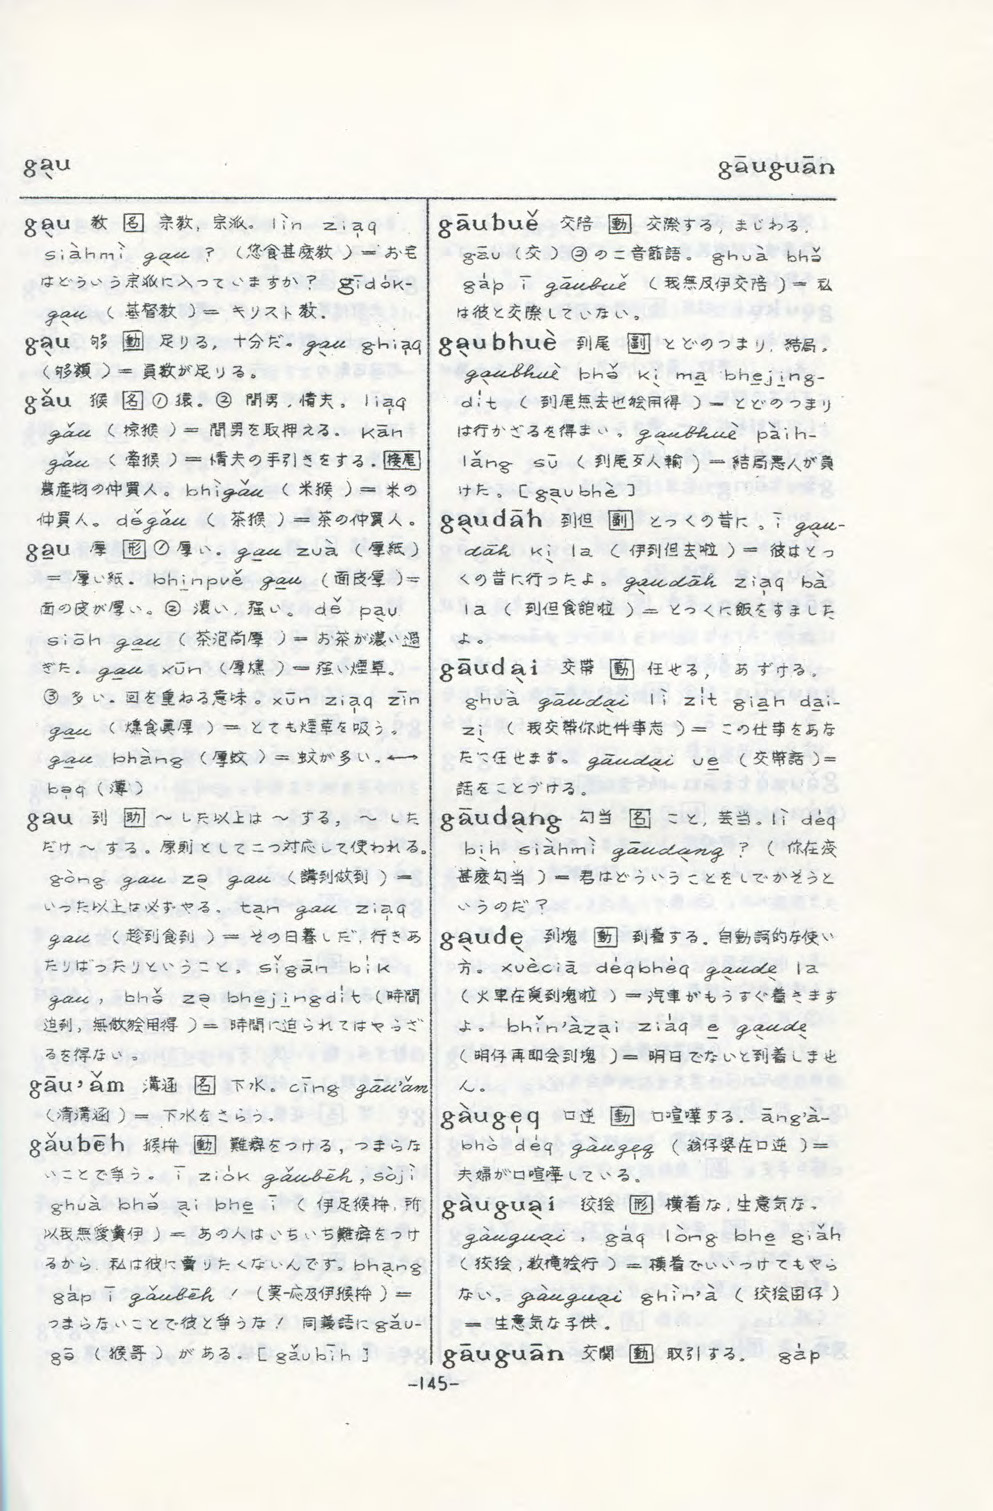 gạu
gāuguān
gạu 教 [名] 宗教, 宗派。 lìn ziạq
siàhmì gạu ? (您食甚麼教) = お宅
はどういう宗派に入っていますか? gīdók-
gạu (基督教) = キリスト教.
gạu 够 [動] 足りる, 十分だ。 gạu ghiạq
(够額) = 員数が足りる。
gǎu 猴 [名] ① 猿。 ② 間男, 情夫。 liạq
gǎu (掠猴) = 間男を取押える. kān
gǎu (牽猴) = 情夫の手引きをする. [接尾]
農産物の仲買人。 bhìgǎu (米猴) = 米の
仲買人。 dégǎu (茶猴) = 茶の仲買人。
ga̱u 厚 [形] ① 厚い。 ga̱u zuà (厚紙)
= 厚い紙. bhi̱npué ga̱u (面皮厚) =
面の皮が厚い。 ② 濃い, 强い。 dě pạu
siōh ga̱u (茶泡尚厚) = お茶が濃い過
ぎた. ga̱u xūn (厚燻) = 强い煙草.
③ 多い. 回を重ねる意味。 xūn ziạq zīn
ga̱u (燻食真厚) = とても煙草を吸う。
ga̱u bhàng (厚蚊) = 蚊が多い. ←→
bạq (薄)
gau 到 [助] ～した以上は～する, ～した
だけ～する. 原則として二つ対応して使われる。
gòng gau zạ gau (講到做到) =
いった以上は必ずやる. tạn gau ziạq
gau (趁到食到) = その日暮しだ, 行きあ
たりばったりということ. sǐgān bi̍k
gau, bhǒ zạ bhe̱ji̱ngdi̍t (時間
迫到, 無做絵用得) = 時間に迫られてはやらざ
るを得ない。
gāu'ǎm 溝涵 [名] 下水。 cīng gāu'ǎm
(清溝涵) = 下水をさらう.
gǎubēh 猴拚 [動] 難癖をつける, つまらな
いことで争う。 ī ziók gǎubēh, sòjì
ghuà bhǒ ại bhe̱ ī (伊足猴拚, 所
以我無愛賣伊) = あの人はいちいち難癖をつけ
るから, 私は彼に賣りたくないんです. bhạng
gáp ī gǎubēh ! (莫応及伊猴拚) =
つまらないことで彼と争うな! 同義語に gǎu-
gō (猴哥) がある. [gǎubīh]
gāubuě 交陪 [動] 交際する, まじわる.
gāu (交) ② の二音節語。 ghuà bhǒ
gáp ī gāubuě (我無及伊交陪) = 私
は彼と交際していない。
gạubhuè 到尾 [副] とどのつまり, 結局。
gạubhuè bhǒ kị ma̱ bhe̱ji̱ng-
di̍t (到尾無去也絵用得) = とどのつまり
は行かざるを得まい。 gạubhuè pàih-
lǎng sū (到尾歹人輸) = 結局悪人が負
けた。 [gạubhè]
gạudāh 到但 [副] とっくの昔に。 ī gạu-
dāh kị la (伊到但去啦) = 彼はとっ
くの昔に行ったよ。 gạudāh ziạq bà.
la (到但食飽啦) = とっくに飯をすました
よ。
gāudại 交帶 [動] 任せる, あずける.
ghuà gāudại lì zi̍t gia̱h dại-
zị (我交帶你此件事志) = この仕事をあな
たに任せます。 gāudại ue̱ (交帶話) =
話をことづける。
gāudạng 勾当 [名] こと, 芸当。 lì déq
bịh siàhmì gāudạng ? (你在
甚麼勾当) = 君はどういうことをしでかそうと
いうのだ?
gạudẹ 到塊 [動] 到着する. 自動詞的な使い
方。 xuècīā déqbhéq gạudẹ la
(火車在到塊啦) = 汽車がもうすぐ着きます
よ。 bhǐn'àzại ziáq e̱ gạudẹ
(明仔再即会到塊) = 明日でないと到着しませ
ん。
gàugẹq 口逆 [動] 口喧嘩する. āng'à-
bhǒ déq gàugẹq (翁仔婆在口逆) =
夫婦が口喧嘩している。
gàuguại 狡獪 [形] 横着な, 生意気な。
gàuguại, gáq lòng bhe̱ giǎh
(狡獪, 教攏絵行) = 横着でいいつけてもやら
ない。 gàuguại ghìn'à (狡獪囝仔)
= 生意気な子供。
gāuguān 交関 [動] 取引する. gáp
-145-